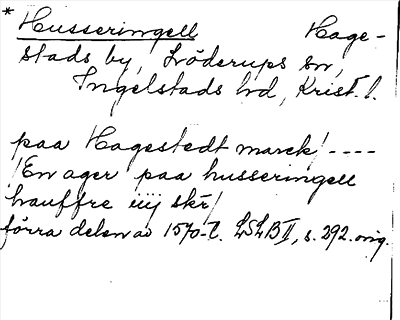 * Husseringell Hage-
stads by, Löderups sn,
Ingelstads hd, Krist. l.
paa Hagestedt marck/ ----
/En ager paa husseringell
hauffre iiij skr/
förra delen av 1570-t. LSLB II, s. 292. orig.